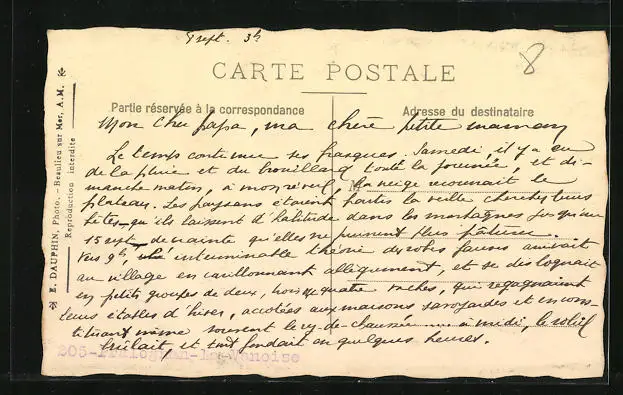 7 sept. 3h
8
CARTE POSTALE
Partie réservée à la correspondance
Adresse du destinataire
Mon cher papa, ma chère petite maman
Le temps continue ses frasques. Samedi, il y a eu
de la pluie et du brouillard toute la journée, et di-
manche matin, à mon réveil, la neige couronnait le
plateau. Les paysans étaient partis la veille chercher leurs
bêtes qu'ils laissent d'habitude dans les montagnes jusqu'au
15 sept. de crainte qu'elles ne puissent plus pâturer.
Vers 9h, une interminable théorie de robes fauves arrivait
au village en carillonnant allègrement, et se disloquait
en petits groupes de deux, trois ou quatre vaches, qui regagnaient
leurs étables d'hiver, accotées aux maisons savoyardes et en cons-
tituant même souvent le rez-de-chaussée à midi, le soleil
brûlait et tout fondait en quelques heures.
205-Pralognan-la-Vanoise
E. DAUPHIN, Photo. - Beaulieu sur Mer, A.M.
Reproduction interdite